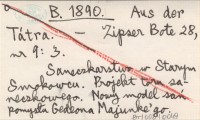 B. 1890. Aus der
Tátra. — Zipser Bote 28,
nr 9: 3.
Saneczkarstwo w Starym
Smokowcu. Projekt toru sa-
neczkowego. Nowy model san
pomysłu Gedeona Majunke'go.